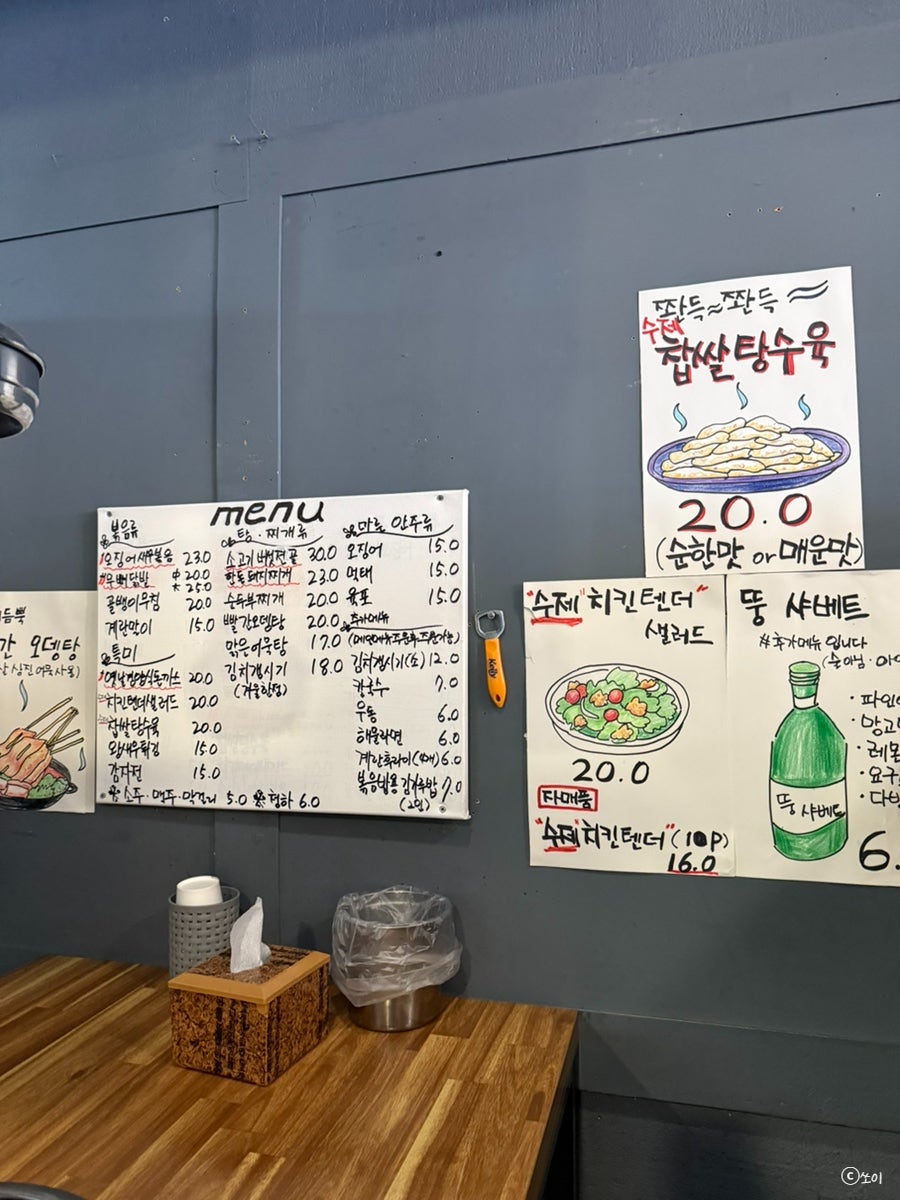 menu
볶음류
오징어새우볶음 23.0
무뼈닭발 中 20.0
大 25.0
골뱅이무침 20.0
계란말이 15.0
튀미
옛날경양식돈까스 20.0
치킨텐더샐러드 20.0
찹쌀탕수육 20.0
왕새우튀김 15.0
감자전 15.0
탕·찌개류
소고기버섯전골 30.0
한돈돼지찌개 23.0
순두부찌개 20.0
빨간오뎅탕 20.0
맑은어묵탕 17.0
김치갱시기 18.0
(겨울한정)
마른안주류
오징어 15.0
먹태 15.0
육포 15.0
추가메뉴
김치갱시기(소) 12.0
칼국수 7.0
우동 6.0
해물라면 6.0
계란후라이(4개) 6.0
볶음밥용 김가루밥 7.0
(2인)
소주·맥주·막걸리 5.0 청하 6.0
쫜득~쫜득
수제
찹쌀탕수육
20.0
(순한맛 or 매운맛)
"수제"치킨텐더"
샐러드
20.0
단매품
"수제"치킨텐더"(10P)
16.0
뚱 샤베트
#추가메뉴입니다
뚱 샤베트
6.
오뎅탕
Kelly
ⓒ쏘이